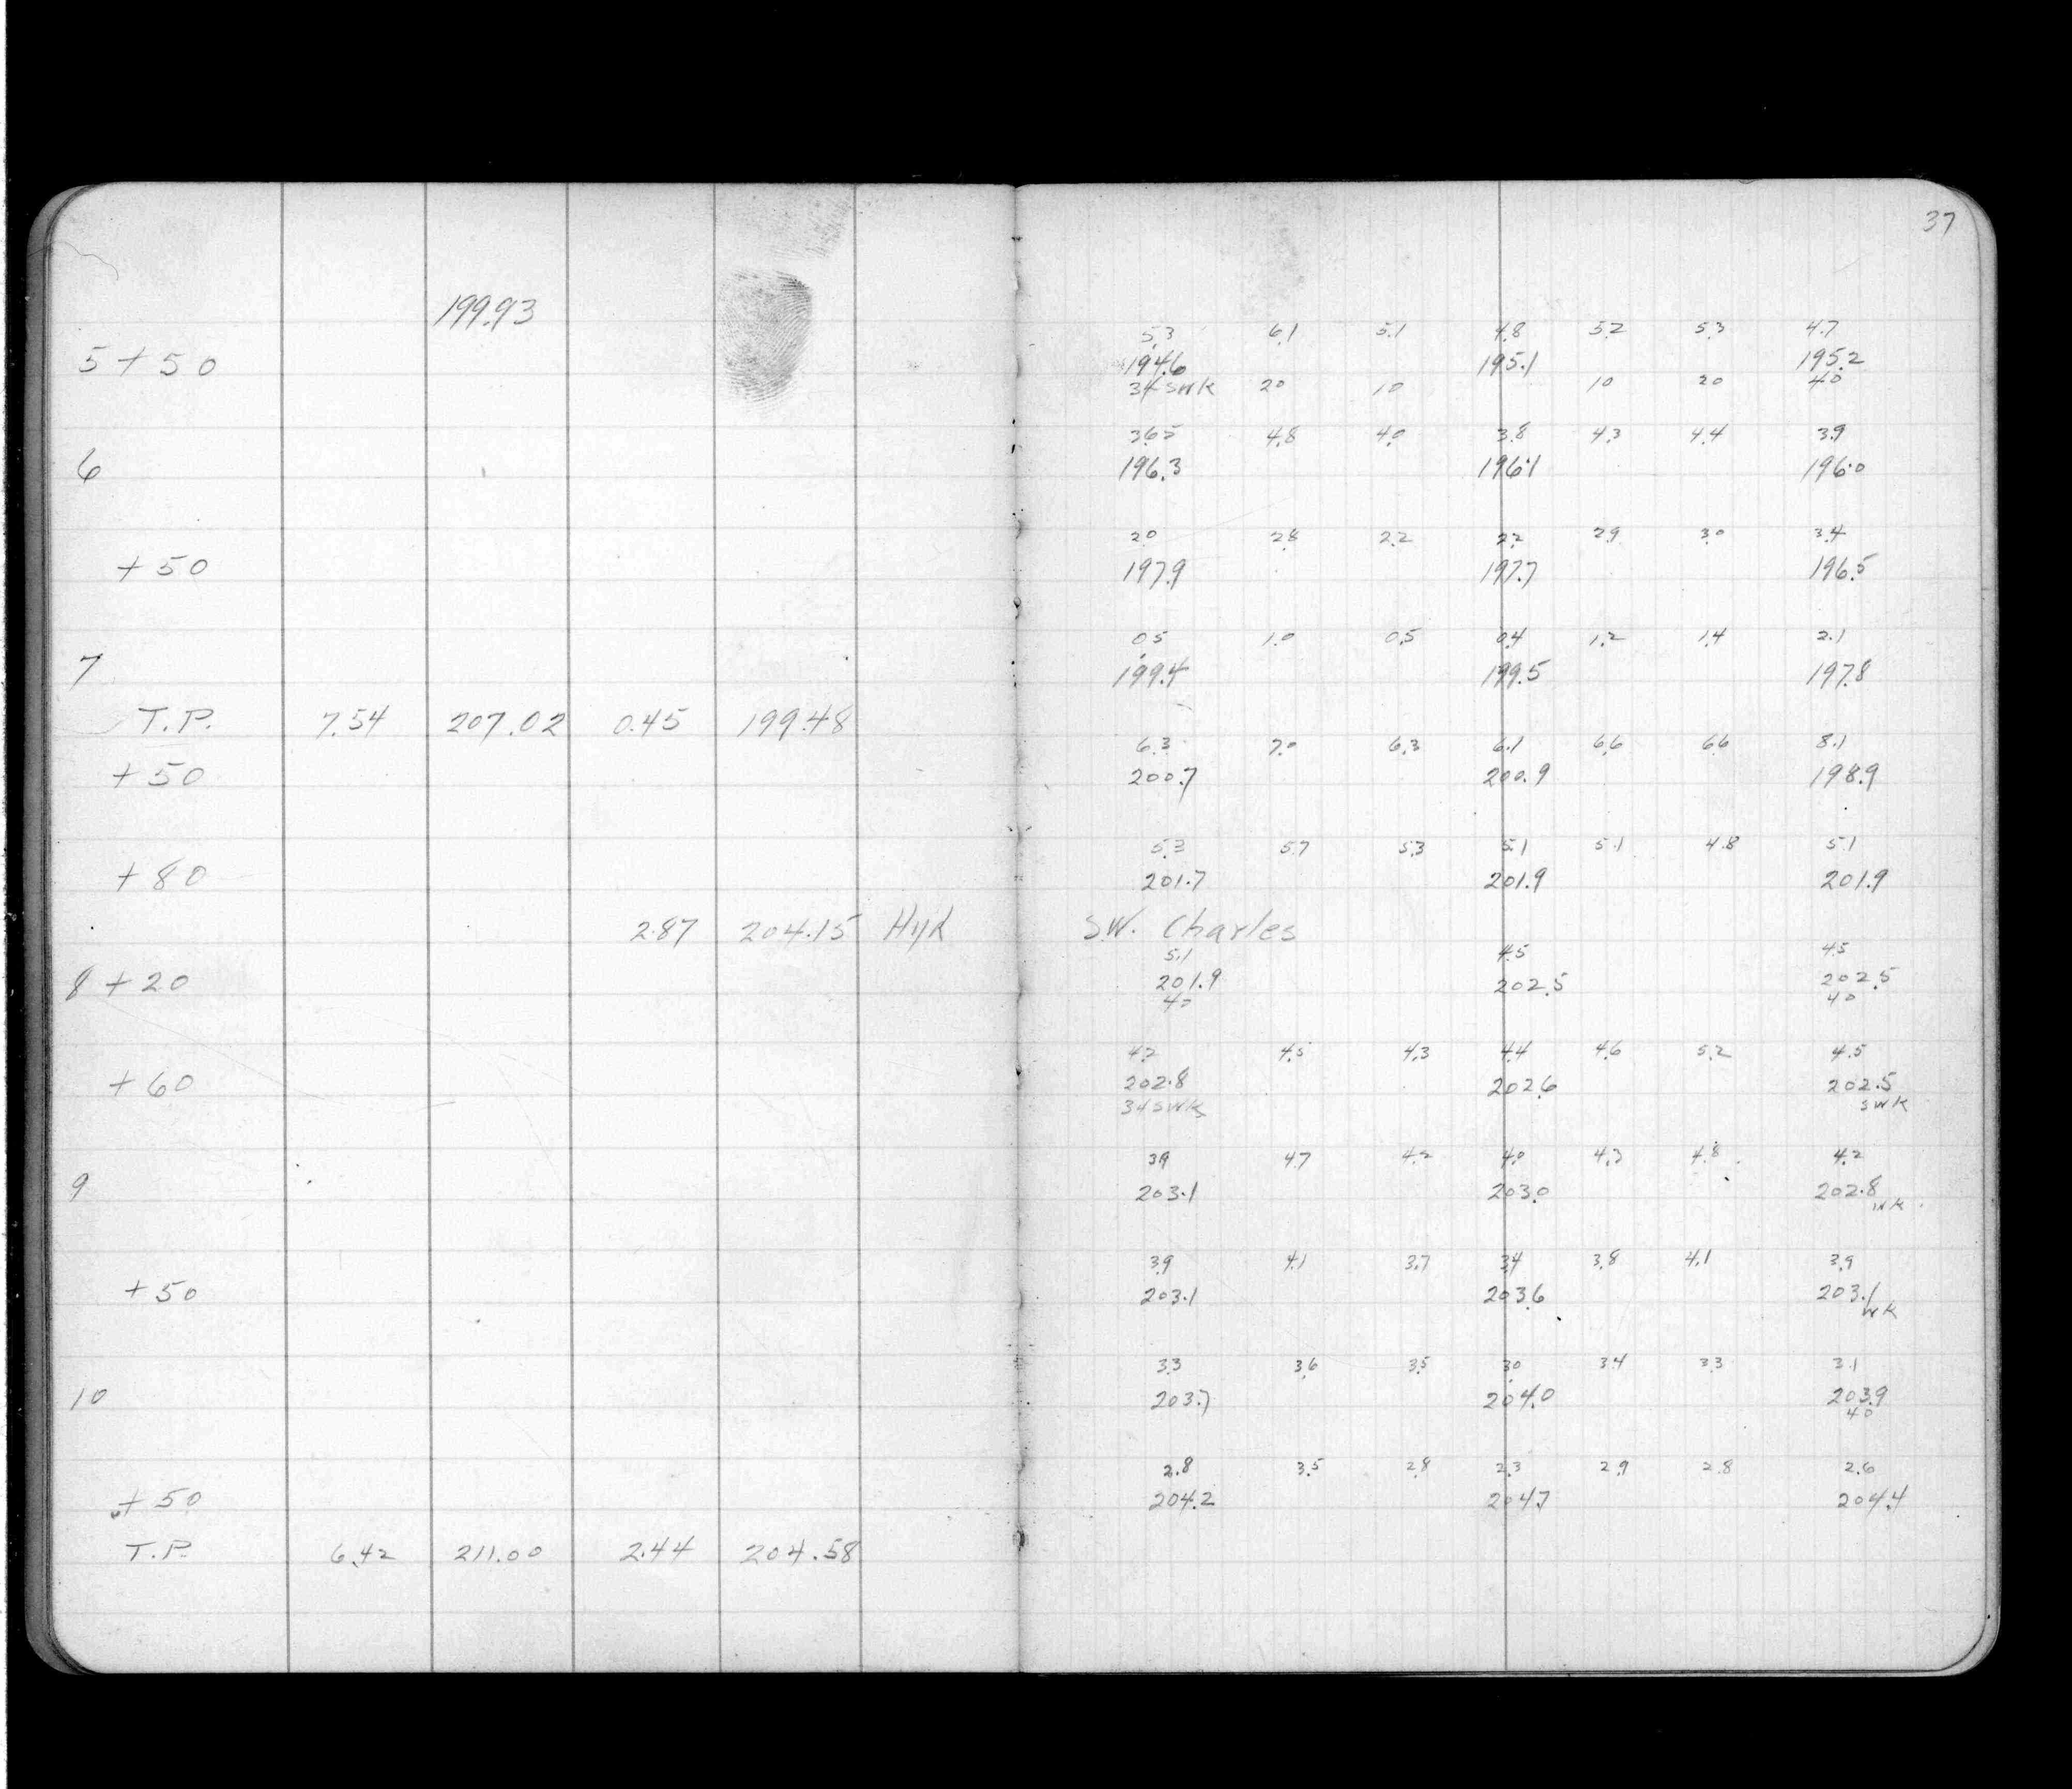 37
199.93
5.3 6.1 5.1 4.8 5.2 5.3 4.7
5+50 194.6 195.1 195.2
34 SWK 20 10 10 20 40
3.65 4.8 4.0 3.8 4.3 4.4 3.9
6 196.3 196.1 196.0
2.0 2.8 2.2 2.2 2.9 3.0 3.4
+50 197.9 197.7 196.5
0.5 1.0 0.5 0.4 1.2 1.4 2.1
7 199.4 199.5 197.8
T.P. 7.54 207.02 0.45 199.48
6.3 7.0 6.3 6.1 6.6 6.6 8.1
+50 200.7 200.9 198.9
5.3 5.7 5.3 5.1 5.1 4.8 5.1
+80 201.7 201.9 201.9
2.87 204.15 Hyd S.W. Charles
5.1 4.5 4.5
8+20 201.9 202.5 202.5
40 40
4.2 4.5 4.3 4.4 4.6 5.2 4.5
+60 202.8 202.6 202.5
34 SWK SWK
3.9 4.7 4.2 4.0 4.3 4.8 4.2
9 203.1 203.0 202.8
WK
3.9 4.1 3.7 3.4 3.8 4.1 3.9
+50 203.1 203.6 203.1
WK
3.3 3.6 3.5 3.0 3.4 3.3 3.1
10 203.7 204.0 203.9
40
2.8 3.5 2.8 2.3 2.9 2.8 2.6
+50 204.2 204.7 204.4
T.P. 6.42 211.00 2.44 204.58